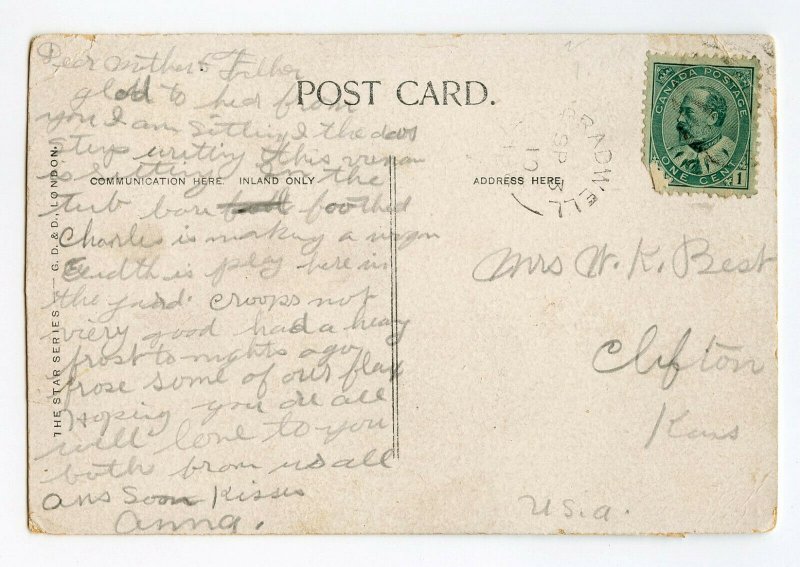 Dear Mother & Father
glad to hed from
you I am Sitting I the door
steps writing this
is Sitting in the
tub bare footed
Charles is making a
Eudth is play here in
the yard. Croops not
viery good had a heavy
frost to nights ago
frose some of our flax
Hoping you are all
will love to you
both from us all
ans Soon Kisses
Anna.
POST CARD.
COMMUNICATION HERE. INLAND ONLY
ADDRESS HERE
THE STAR SERIES — G. D. & D., LONDON.
RADWELL
SP 3
10
CANADA POSTAGE
ONE CENT
1
Mrs W. K. Best
Clifton
Kans
U.S.A.